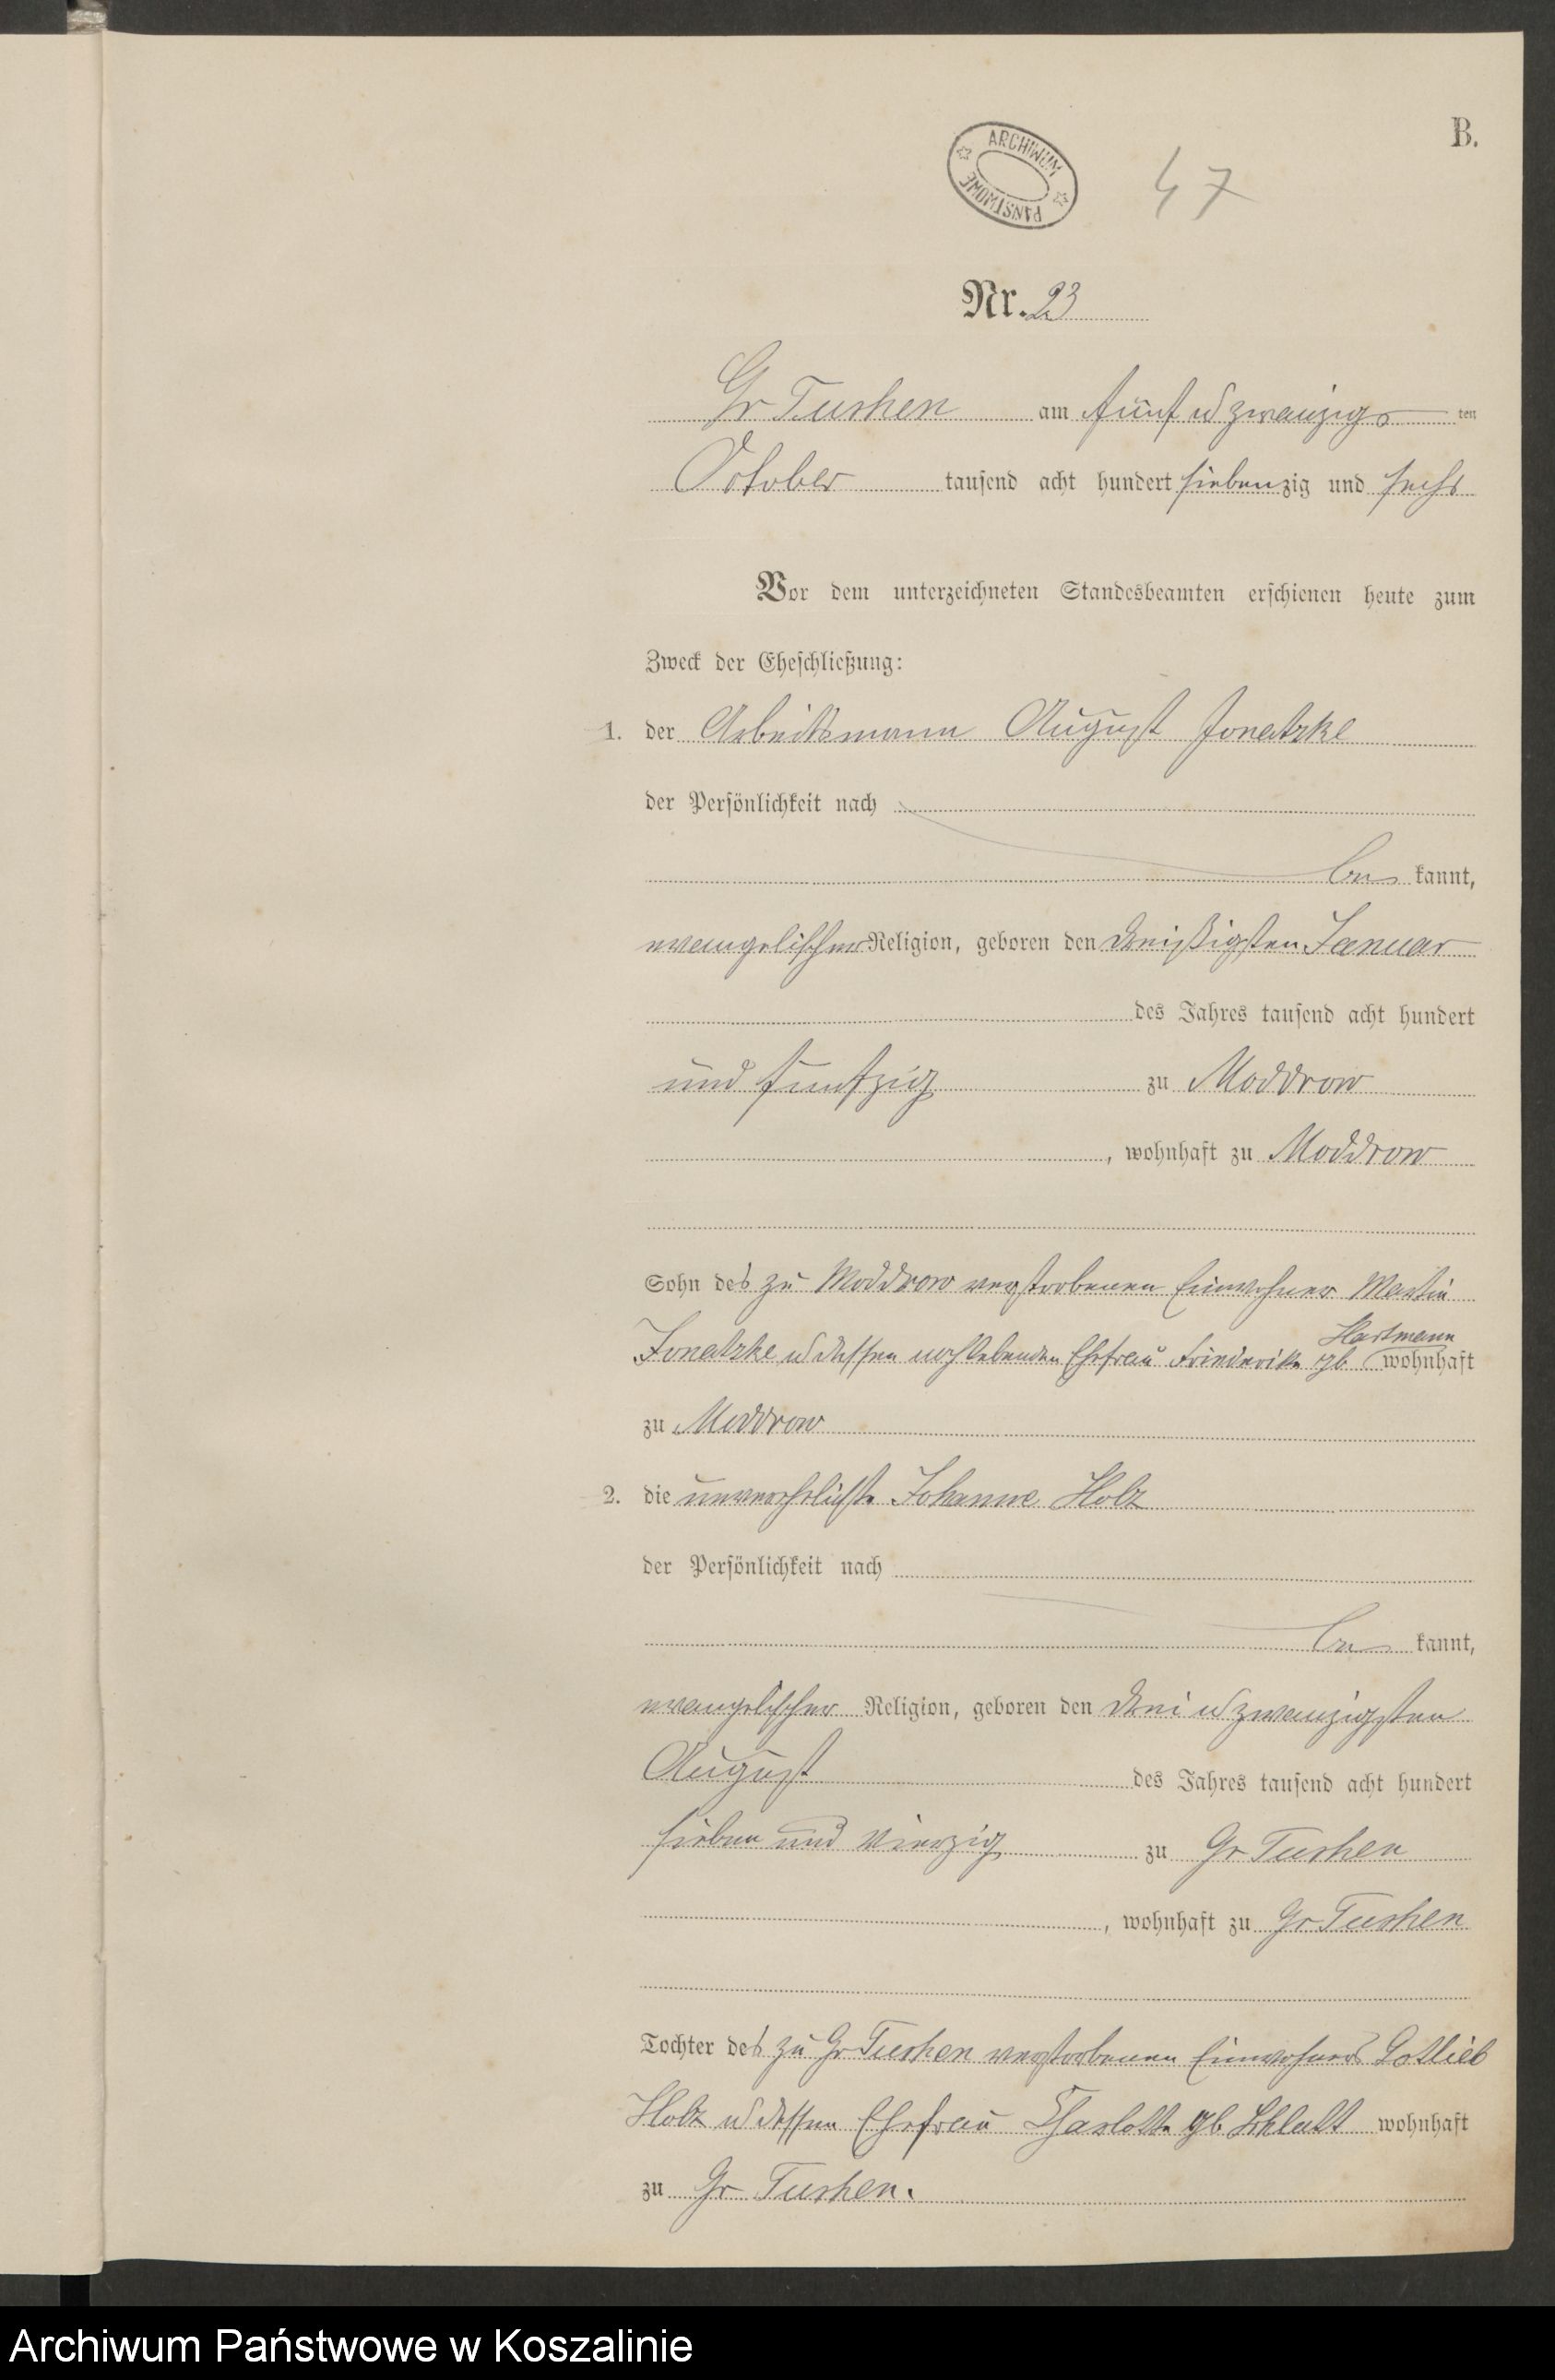 B.
ARCHIWUM PAŃSTWOWE
47
Nr. 23
Gr Tuchen am fünf u zwanzigs ten
October tausend acht hundert siebenzig und sechs
Vor dem unterzeichneten Standesbeamten erschienen heute zum
Zweck der Eheschließung:
1. der Arbeitsmann August Jonatzke
der Persönlichkeit nach
be kannt,
evangelischer Religion, geboren den dreißigsten Januar
des Jahres tausend acht hundert
und funfzig zu Moddrow
, wohnhaft zu Moddrow
Sohn des zu Moddrow verstorbenen Einwohner Martin
Hartmann
Jonatzke u dessen noch lebenden Ehefrau Friederike gb wohnhaft
zu Moddrow
2. die unverehelichte Johanne Holz
der Persönlichkeit nach
be kannt,
evangelischer Religion, geboren den drei u zwanzigsten
August des Jahres tausend acht hundert
sieben und vierzig zu Gr Tuchen
, wohnhaft zu Gr Tuchen
Tochter des zu Gr Tuchen verstorbenen Einwohners Gottlieb
Holz u dessen Ehefrau Charlotte gb Schlatt wohnhaft
zu Gr Tuchen.
Archiwum Państwowe w Koszalinie